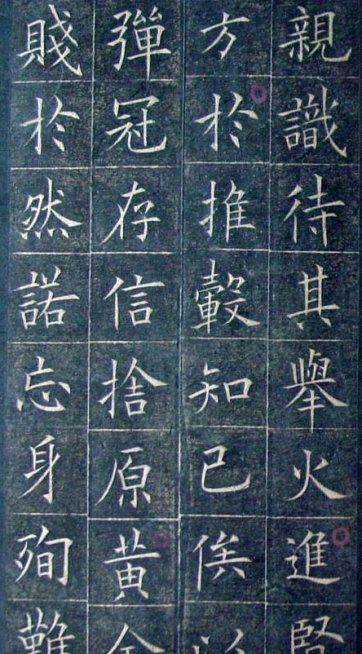 親識待其舉火進賢
方於推轂知己俟以
彈冠存信捨原黃金
賤於然諾忘身殉難